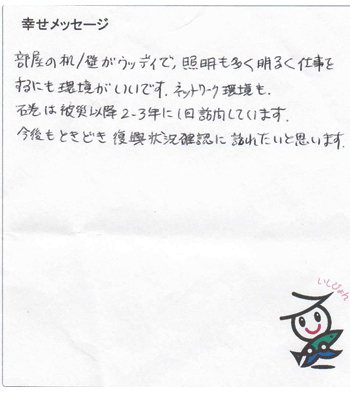 幸せメッセージ
部屋の机/壁がウッディで、照明も多く明るく仕事を
するにも環境がいいです。ネットワーク環境も。
石巻は被災以降2-3年に1回訪問しています。
今後もときどき復興状況確認に訪れたいと思います。
いしぴょん